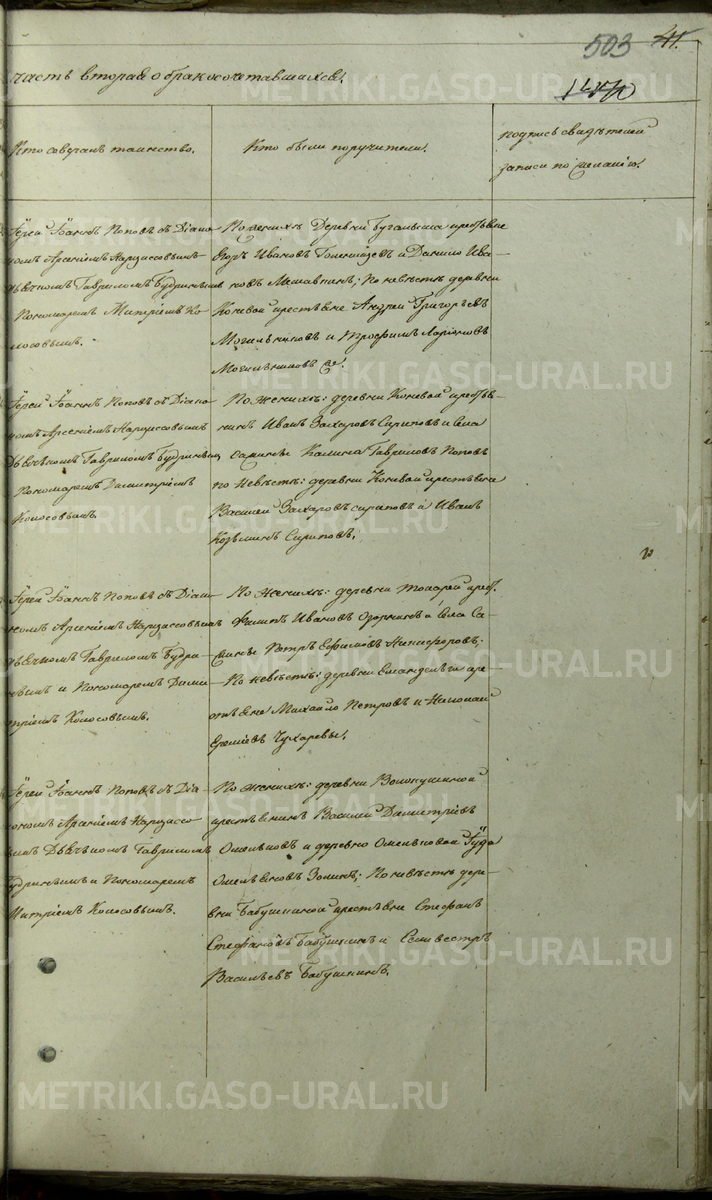 503 41.
часть вторая о бракосочетавшихся.
1450
Кто совершалъ таинство.
Кто были поручители.
подпись свидѣтелей
записи по желанію.
Іерей Іоаннъ Поповъ съ Діако-
номъ Арсеніемъ Нарциссовымъ
дьячкомъ Гавриломъ Будринымъ и
Пономаремъ Митріемъ Ко-
лосовымъ.
По женихѣ деревни крестьяне
Егоръ Ивановъ и Данило Ива-
новъ; По невѣстѣ деревни
Коневой крестьяне Андрей Григорьевъ
Могильниковъ и Трофимъ Ларіоновъ
Могильниковъ
Іерей Іоаннъ Поповъ съ Діако-
номъ Арсеніемъ Нарциссовымъ
Дьячкомъ Гавриломъ Будринымъ
Пономаремъ Димитріемъ
Колосовымъ
По женихѣ: деревни Коневой крестья-
нинъ Иванъ Захаровъ Сириповъ и села
Калина Гавриловъ Поповъ
по невѣстѣ: деревни Коневой крестьяне
Василей Захаровъ Сириповъ и Иванъ
Козьминъ Сириповъ.
Іерей Іоаннъ Поповъ съ Діако-
номъ Арсеніемъ Нарциссовымъ
дьячкомъ Гавриломъ Будри-
нымъ и Пономаремъ Дими-
тріемъ Колосовымъ.
По женихѣ: деревни крест.
Филипъ Ивановъ и села
Петръ Ефимовъ Никифоровъ;
По невѣстѣ: деревни кре-
стьяне Михайло Петровъ и Николай
Еремѣевъ Чухаревы.
Іерей Іоаннъ Поповъ съ Діа-
кономъ Арсеніемъ Нарциссо-
вымъ Дьячкомъ Гавриломъ
Будринымъ и Пономаремъ
Митріемъ Колосовымъ.
По женихѣ: деревни Волокушиной
крестьянинъ Василей Димитріевъ
Омельковъ и деревни Омельковой
Зоминъ; По невѣстѣ дере-
вни Бабушкиной крестьяне Стефанъ
Стефановъ Бабушкинъ и Селивестръ
Васильевъ Бабушкинъ.
METRIKI.GASO-URAL.RU